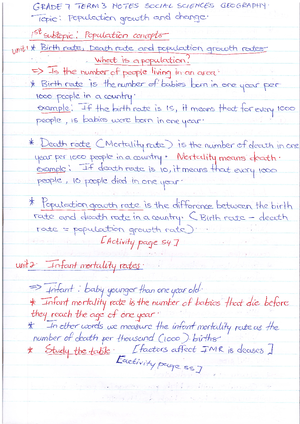 GRADE 7 TERM 3 NOTES SOCIAL SCIENCES GEOGRAPHY
Topic: Population growth and change
1st subtopic: Population concepts
unit 1 * Birth rate, Death rate and population growth rates
What is a population?
=> Is the number of people living in an area.
* Birth rate is the number of babies born in one year per
1000 people in a country.
example: If the birth rate is 15, it means that for every 1000
people, 15 babies were born in one year.
* Death rate (Mortality rate) is the number of death in one
year per 1000 people in a country. Mortality means death.
example: If death rate is 10, it means that every 1000
people, 10 people died in one year.
* Population growth rate is the difference between the birth
rate and death rate in a country. (Birth rate - death
rate = population growth rate)
[Activity page 54]
unit 2: Infant mortality rates:
=> Infant: baby younger than one year old.
* Infant mortality rate is the number of babies that die before
they reach the age of one year.
* In other words we measure the infant mortality rate as the
number of death per thousand (1000) births.
* Study the table. [factors affect IMR is deases]
[activity page 55]